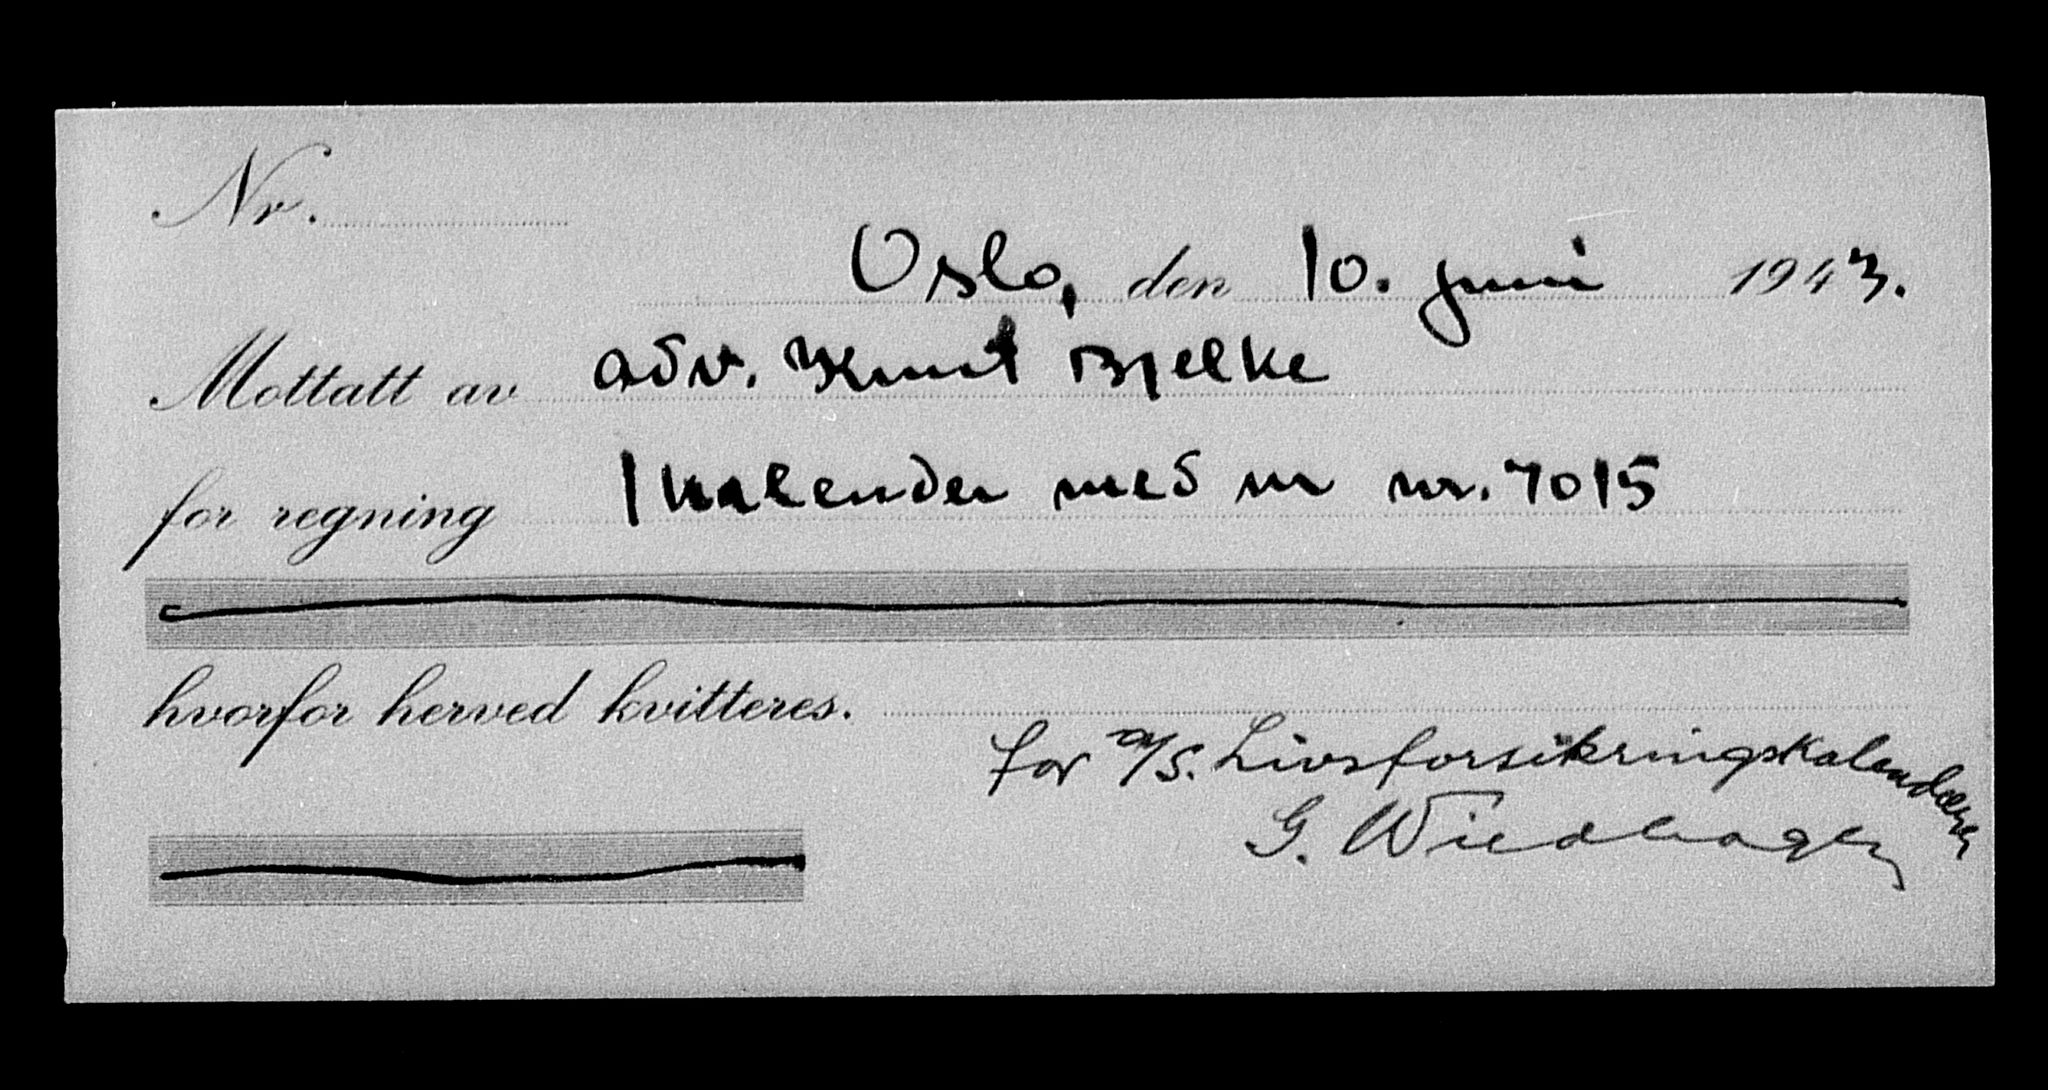 Nr.
Oslo, den 10. juni 1943.
Mottatt av adv. Knut Bjelke
for regning 1 kalender med ur nr. 7015
hvorfor herved kvitteres.
for A/S. Livsforsikringskalenderen
G. Wiedhagen